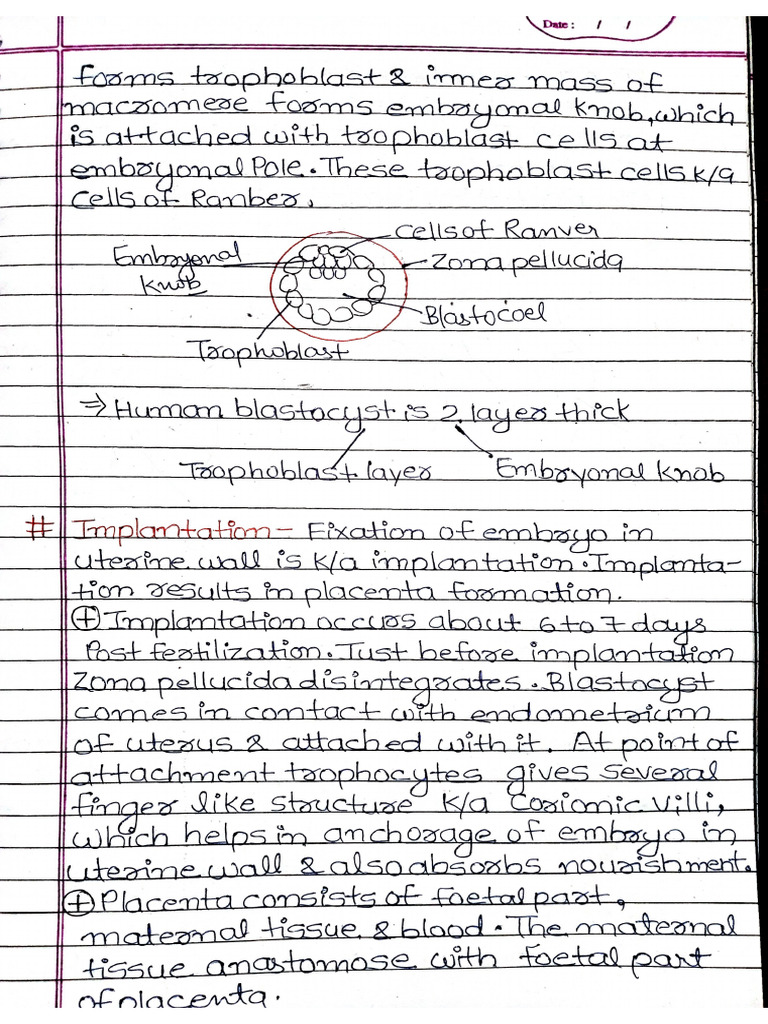 Date : / /
forms trophoblast & inner mass of
macromere forms embryonal knob, which
is attached with trophoblast cells at
embryonal Pole. These trophoblast cells K/a
Cells of Ranber.
Cells of Ranver
Embryonal
Knob
Zona pellucida
Blastocoel
Trophoblast
⇒ Human blastocyst is 2 layer thick
Trophoblast layer Embryonal Knob
# Implantation - Fixation of embryo in
uterine wall is K/a implantation. Implanta-
tion results in placenta formation.
⊕ Implantation occurs about 6 to 7 days
Post fertilization. Just before implantation
Zona pellucida disintegrates. Blastocyst
comes in contact with endometrium
of uterus & attached with it. At point of
attachment trophocytes gives several
finger like structure K/a Corionic Villi,
which helps in anchorage of embryo in
uterine wall & also absorbs nourishment.
⊕ Placenta consists of foetal part,
maternal tissue & blood. The maternal
tissue anastomose with foetal part
of placenta.